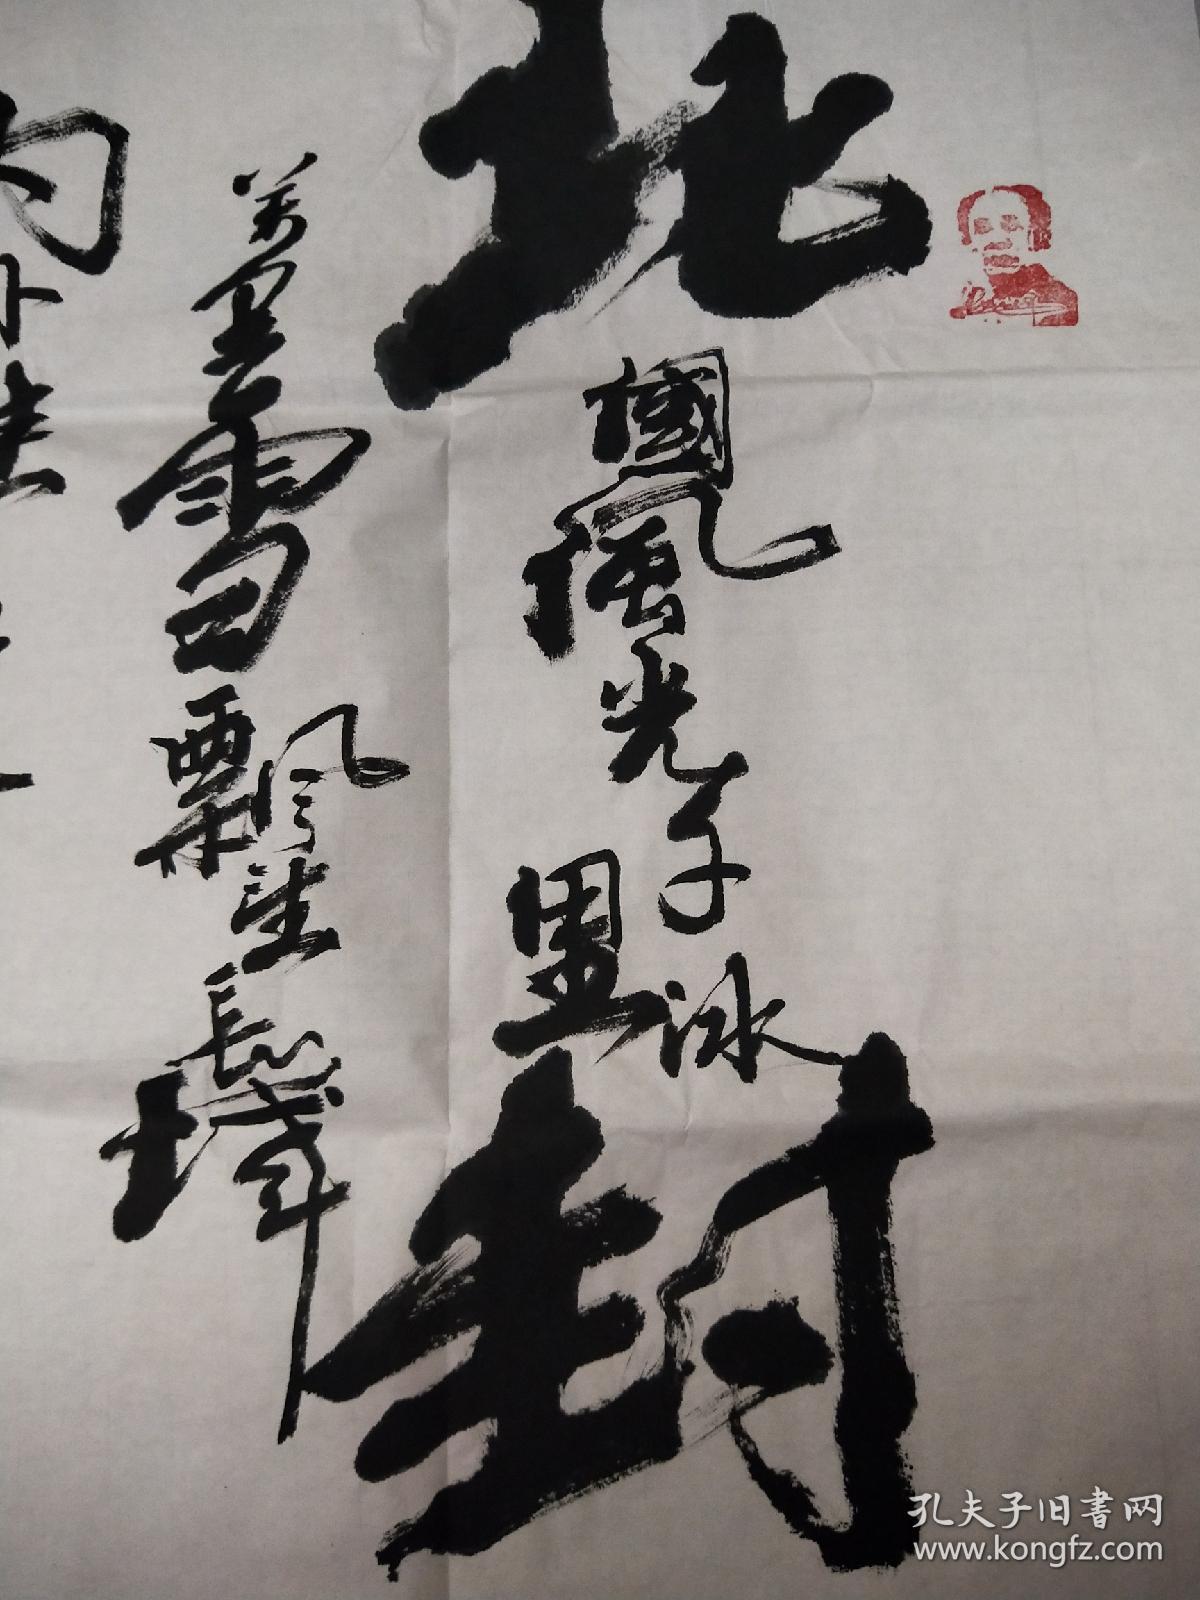 北國風光千里冰封
萬里雪飄望長城
内外惟
孔夫子旧書网
www.kongfz.com